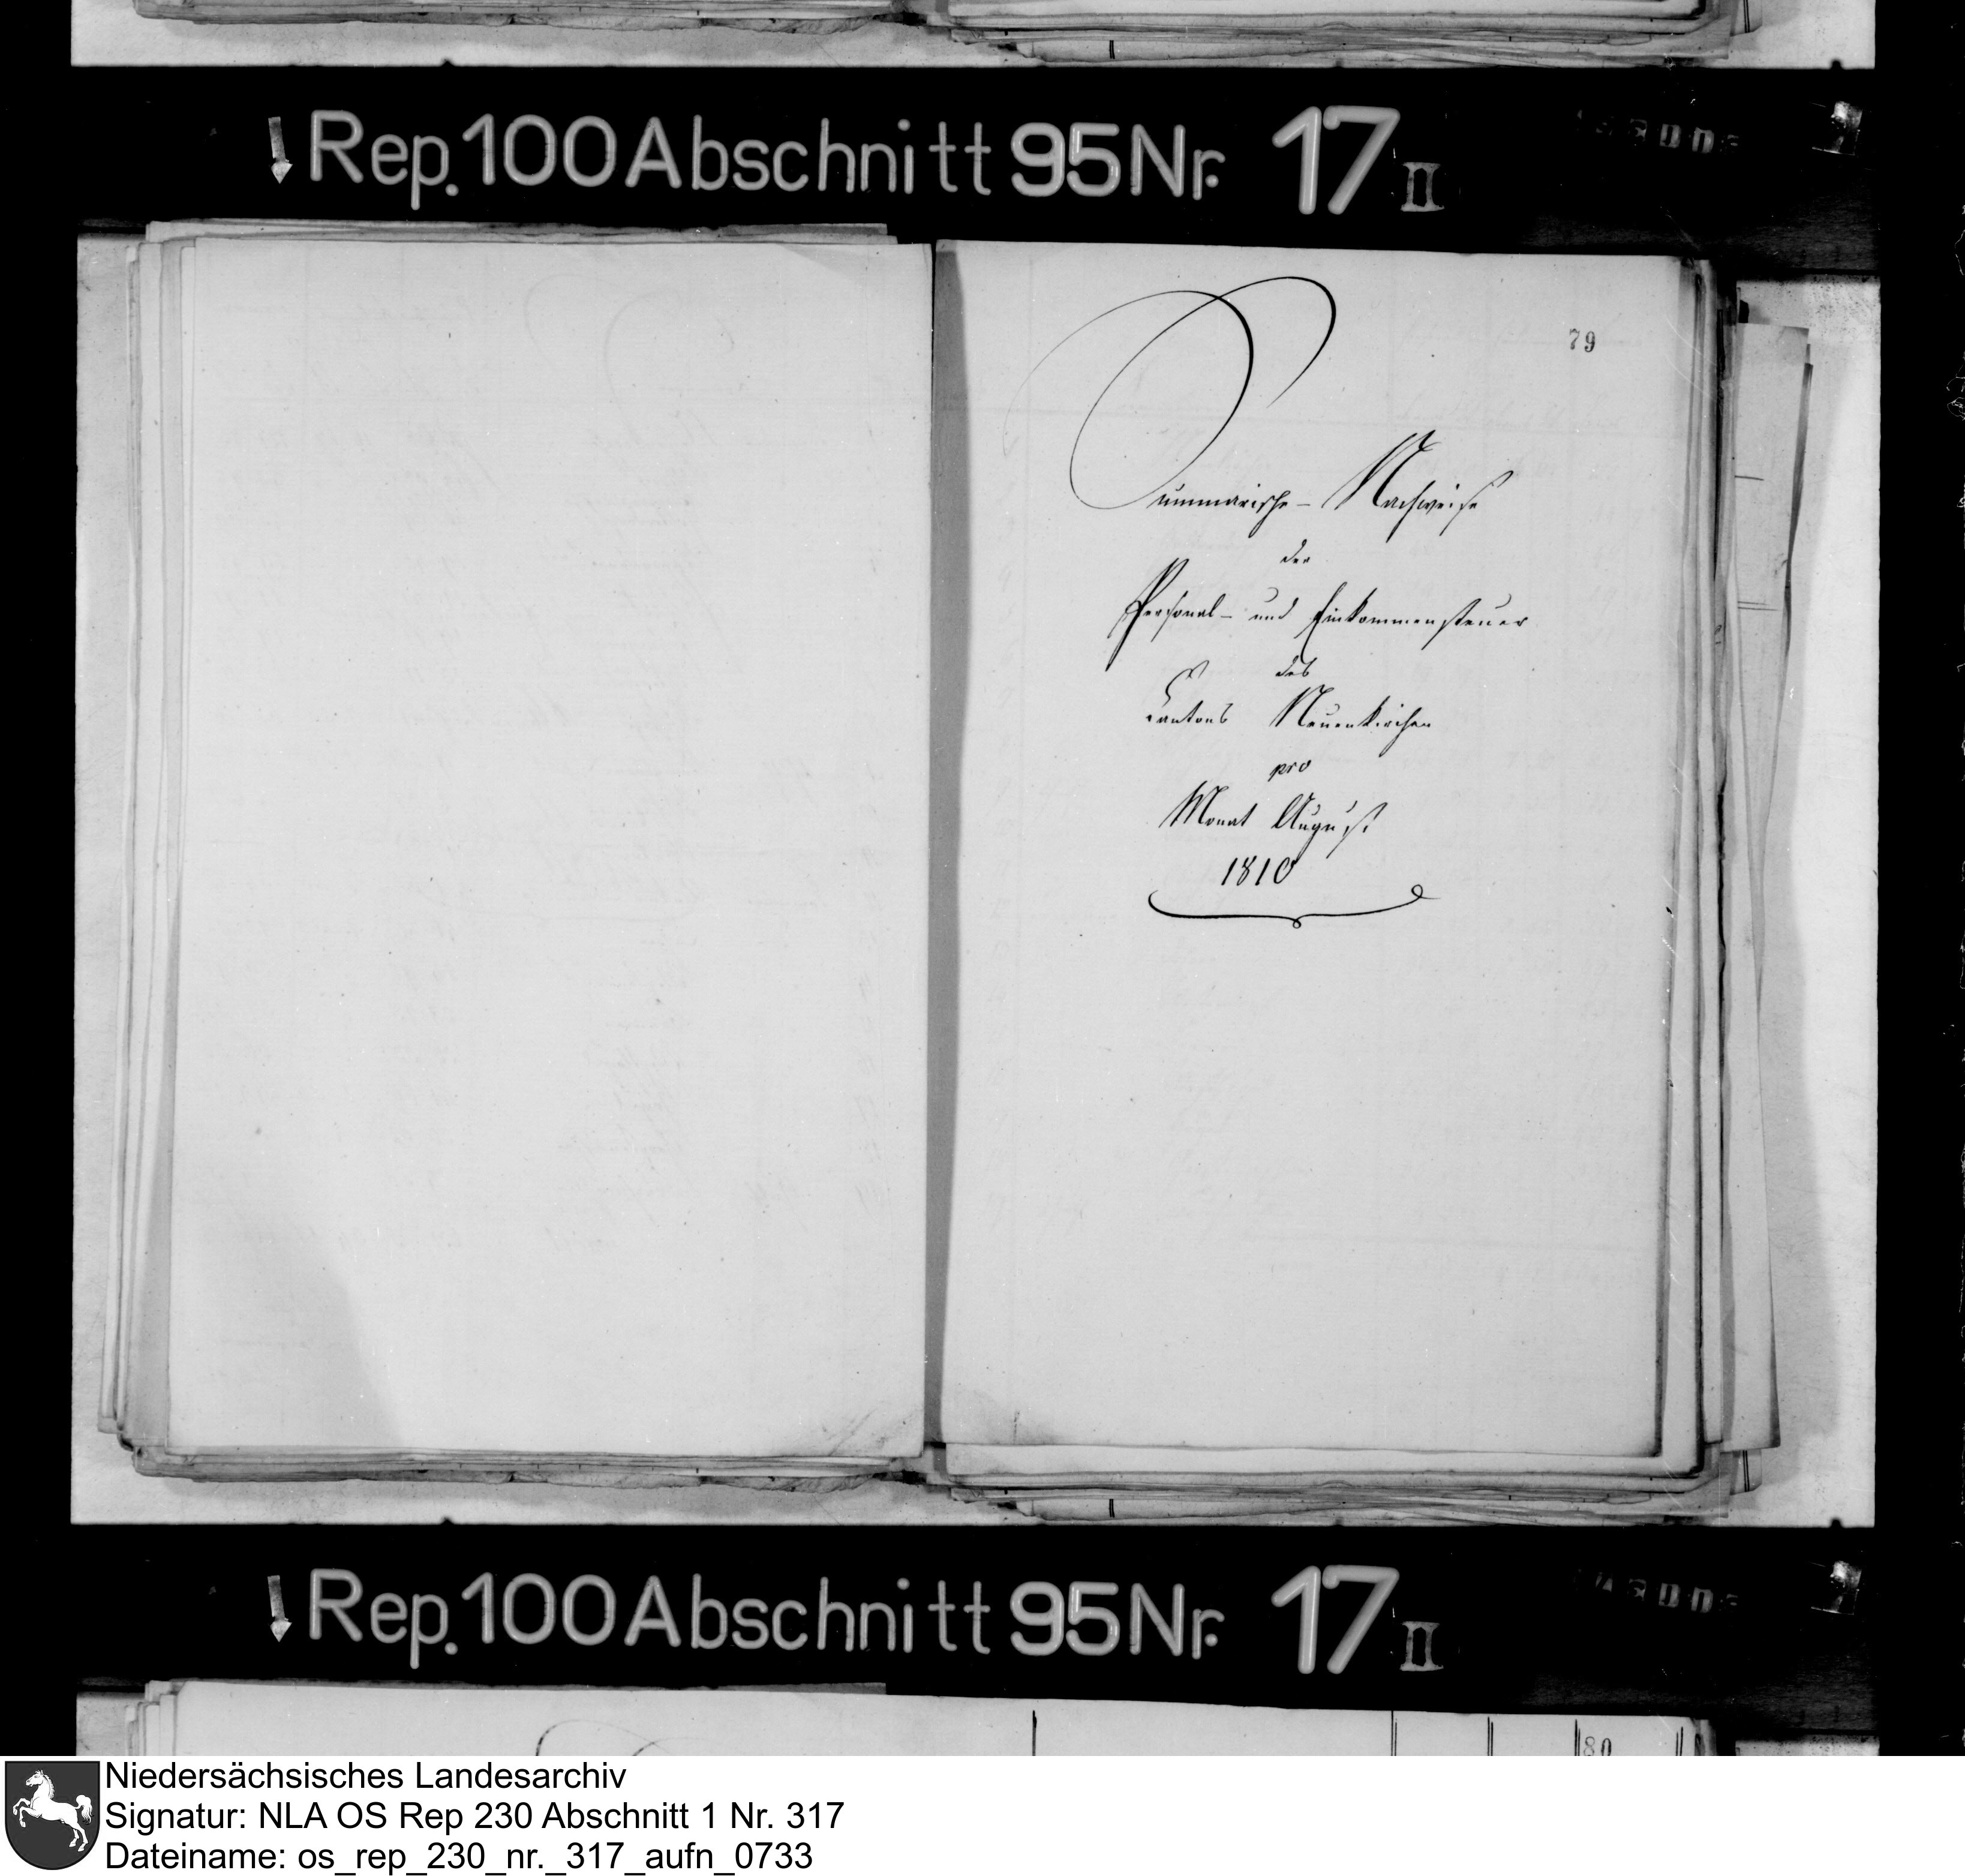 Rep. 100 Abschnitt 95 Nr. 17 II
79
Summarische - Nachweise
der
Personal- und Einkommensteuer
des
Cantons Neuenkirchen
pro
Monat August
1810
Rep. 100 Abschnitt 95 Nr. 17 II
80
Niedersächsisches Landesarchiv
Signatur: NLA OS Rep 230 Abschnitt 1 Nr. 317
Dateiname: os_rep_230_nr._317_aufn_0733